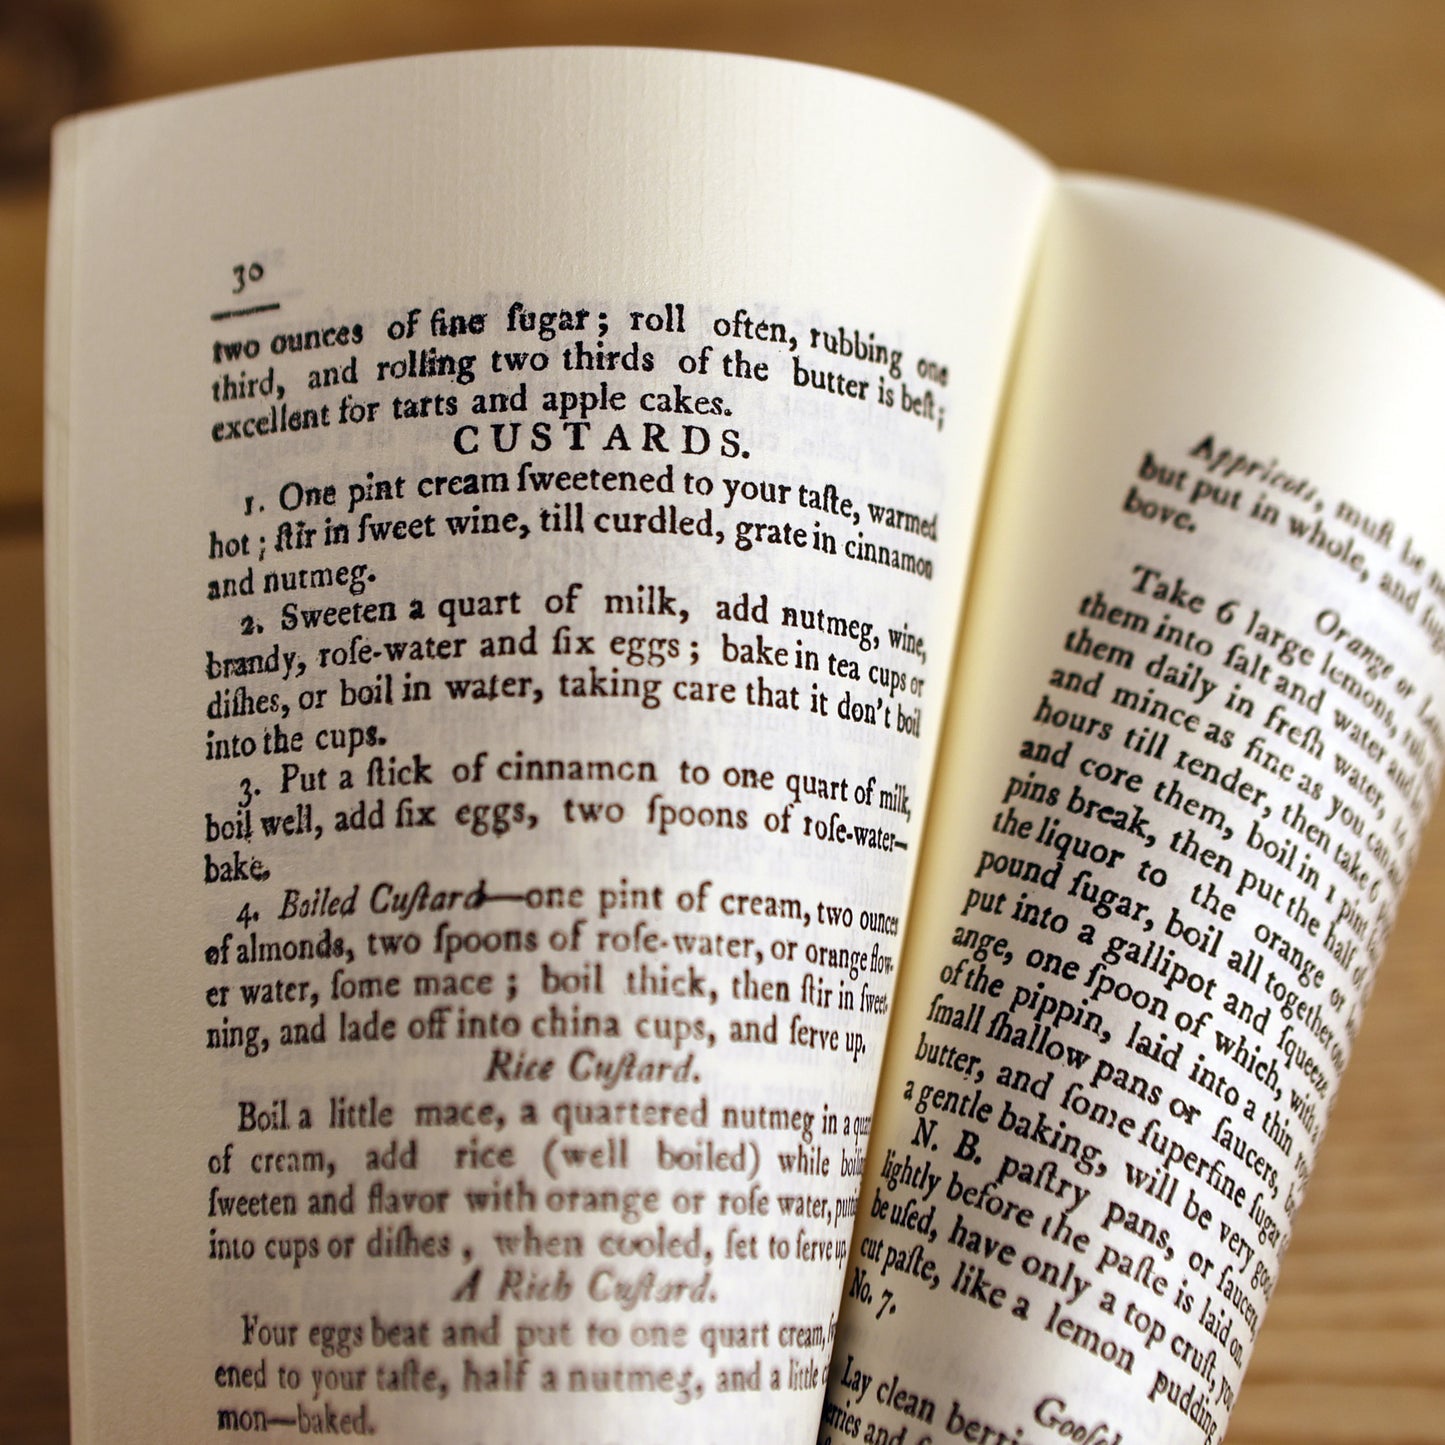 30
two ounces of fine ſugar; roll often, rubbing one
third, and rolling two thirds of the butter is beſt;
excellent for tarts and apple cakes.
CUSTARDS.
1. One pint cream ſweetened to your taſte, warmed
hot; ſtir in ſweet wine, till curdled, grate in cinnamon
and nutmeg.
2. Sweeten a quart of milk, add nutmeg, wine,
brandy, roſe-water and ſix eggs; bake in tea cups or
diſhes, or boil in water, taking care that it don't boil
into the cups.
3. Put a ſtick of cinnamon to one quart of milk,
boil well, add ſix eggs, two ſpoons of roſe-water—
bake.
4. Boiled Cuſtard—one pint of cream, two ounces
of almonds, two ſpoons of roſe-water, or orange flow-
er water, ſome mace; boil thick, then ſtir in ſweet-
ning, and lade off into china cups, and ſerve up.
Rice Cuſtard.
Boil a little mace, a quartered nutmeg in a
of cream, add rice (well boiled) while
ſweeten and flavor with orange or roſe water,
into cups or diſhes, when cooled, ſet to ſerve up.
A Rich Cuſtard.
Four eggs beat and put to one quart cream,
ened to your taſte, half a nutmeg, and a little
mon—baked.
Appricots, muſt be
but put in whole, and
bove.
Orange or
Take 6 large lemons,
them into ſalt and water and
them daily in freſh water,
and mince as fine as you can
hours till render, then take 6
and core them, boil in 1 pint
pins break, then put the half of
the liquor to the orange or
pound ſugar, boil all together
put into a gallipot and ſqueeze
ange, one ſpoon of which, with a
of the pippin, laid into a thin
ſmall ſhallow pans or ſaucers,
butter, and ſome ſuperfine ſugar
a gentle baking, will be very
N. B. paſtry pans, or ſaucers,
lightly before the paſte is laid on.
be uſed, have only a top cruſt,
cut paſte, like a lemon pudding
No. 7.
Lay clean
and